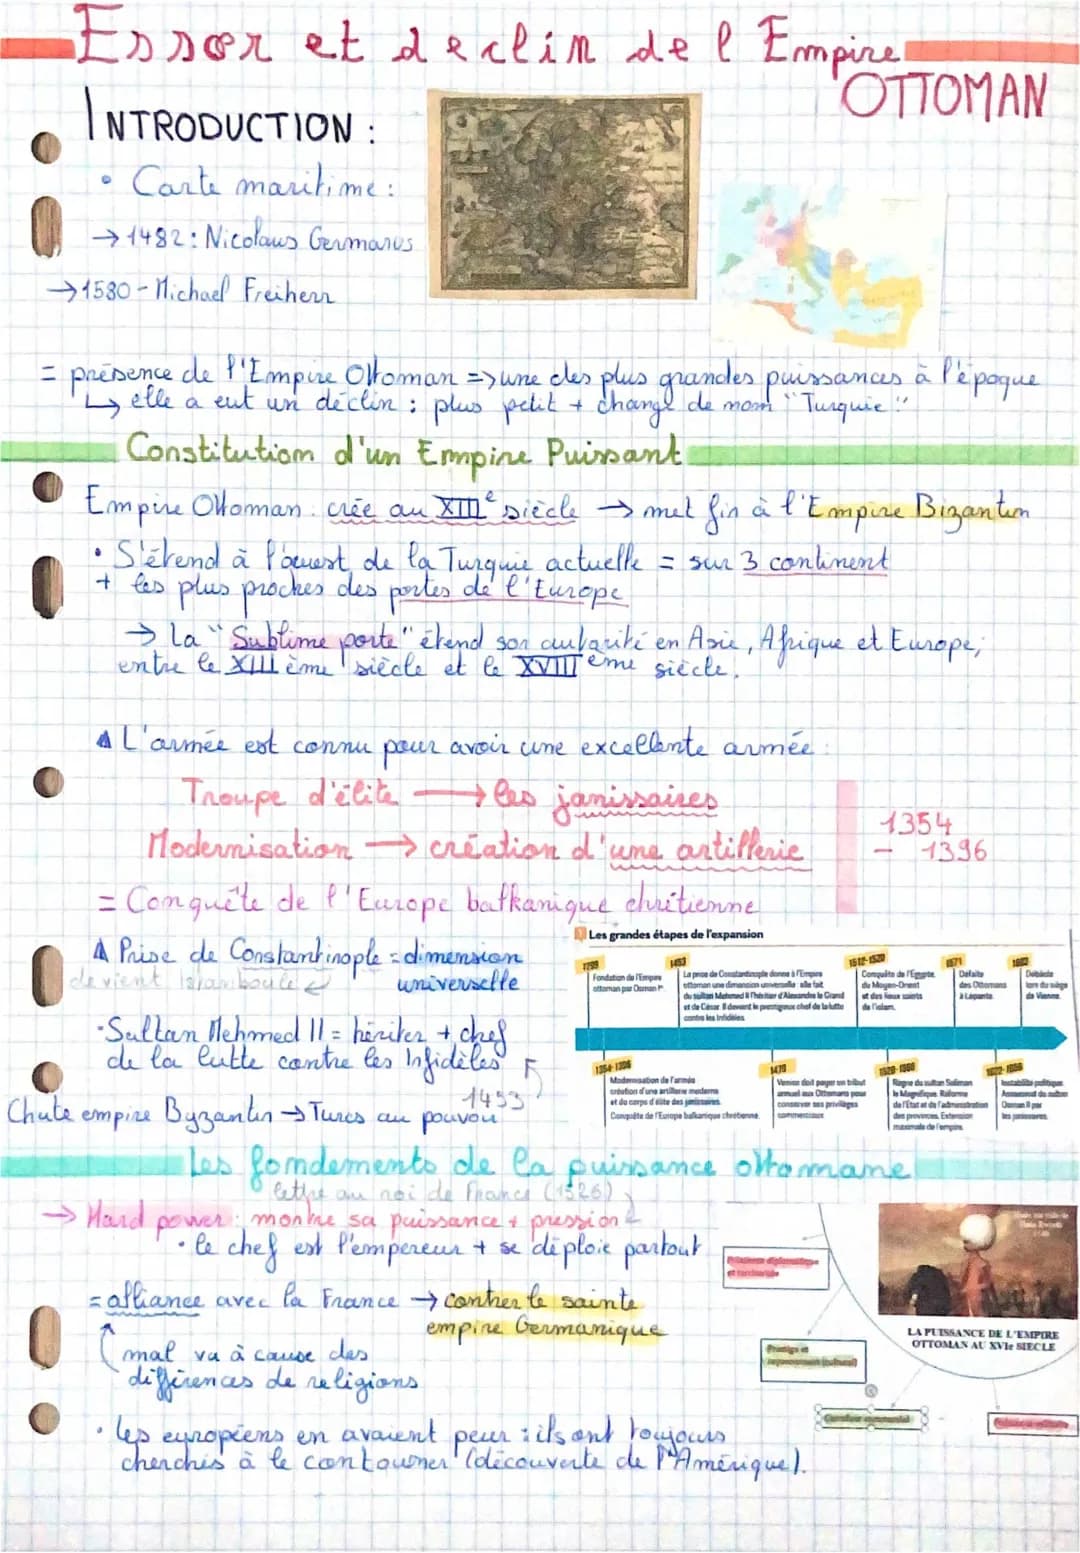 Essor et declin de l'Empire
OTTOMAN
INTRODUCTION :
• Carte maritime :
→ 1482 : Nicolaus Germanus
→ 1580 - Michael Freiherr
= présence de l'Empire Ottoman => une des plus grandes puissances à l'époque
↳ elle a eut un déclin : plus petit + change de nom "Turquie"
Constitution d'un Empire Puissant
Empire Ottoman crée au XIIIe siècle → met fin à l'Empire Bizantin
• S'étend à l'ouest de la Turquie actuelle = sur 3 continent
+ les plus proches des portes de l'Europe
→ La "Sublime porte" étend son autorité en Asie, Afrique et Europe,
entre le XIIIème siècle et le XVIIIème siècle.
L'armée est connu pour avoir une excellente armée :
Troupe d'élite → les janissaires
Modernisation → création d'une artillerie
1354
- 1396
= Conquête de l'Europe balkanique chrétienne
Prise de Constantinople = dimension
devient Istanboule universelle
• Sultan Mehmed II = hériter + chef
de la lutte contre les Infidèles
1453
Chute empire Byzantin → Turcs au pouvoir
Les grandes étapes de l'expansion
1299
Fondation de l'Empire
ottoman par Osman Ier
1453
La prise de Constantinople donne à l'Empire
ottoman une dimension universelle : elle fait
du sultan Mehmed II l'héritier d'Alexandre le Grand
et de César. Il devient le prestigieux chef de la lutte
contre les Infidèles
1512-1520
Conquête de l'Égypte,
du Moyen-Orient
et des lieux saints
de l'islam.
1571
Défaite
des Ottomans
à Lépante.
1683
Débâcle
lors du siège
de Vienne.
1354-1396
Modernisation de l'armée
création d'une artillerie moderne
et du corps d'élite des janissaires.
Conquête de l'Europe balkanique chrétienne.
1479
Venise doit payer un tribut
annuel aux Ottomans pour
conserver ses privilèges
commerciaux
1520-1566
Règne du sultan Soliman
le Magnifique. Réforme
de l'État et de l'administration
des provinces. Extension
maximale de l'empire.
1622-1656
Instabilité politique.
Assassinat du sultan
Osman II par
les janissaires.
Les fondements de la puissance ottomane
lettre au roi de France (1526)
→ Hard power : montre sa puissance + pression
• le chef est l'empereur + se déploie partout
= alliance avec la France → contrer le sainte
empire Germanique
mal vu à cause des
différences de religions
• les européens en avaient peur : ils ont toujours
cherchés à le contourner (découverte de l'Amérique).
LA PUISSANCE DE L'EMPIRE
OTTOMAN AU XVIe SIECLE